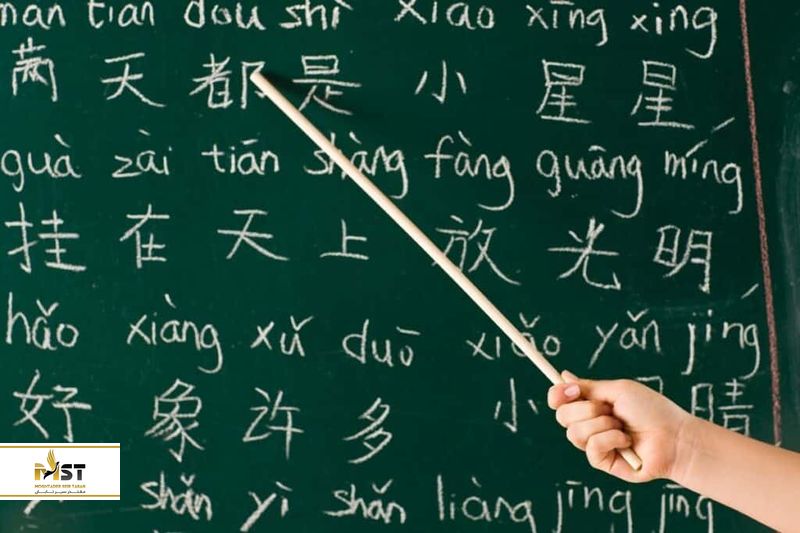 man tian dou shì xiao xīng xing
满 天 都 是 小 星 星
guà zài tiān shàng fàng guāng míng
挂 在 天 上 放 光 明
hǎo xiàng xǔ duō xiǎo yǎn jíng
好 象 许 多 小 晴
shǎn yì shǎn liàng jīng jīng
MST
MOGHTADER SEIR TABAN
مقتدر سیر تابان